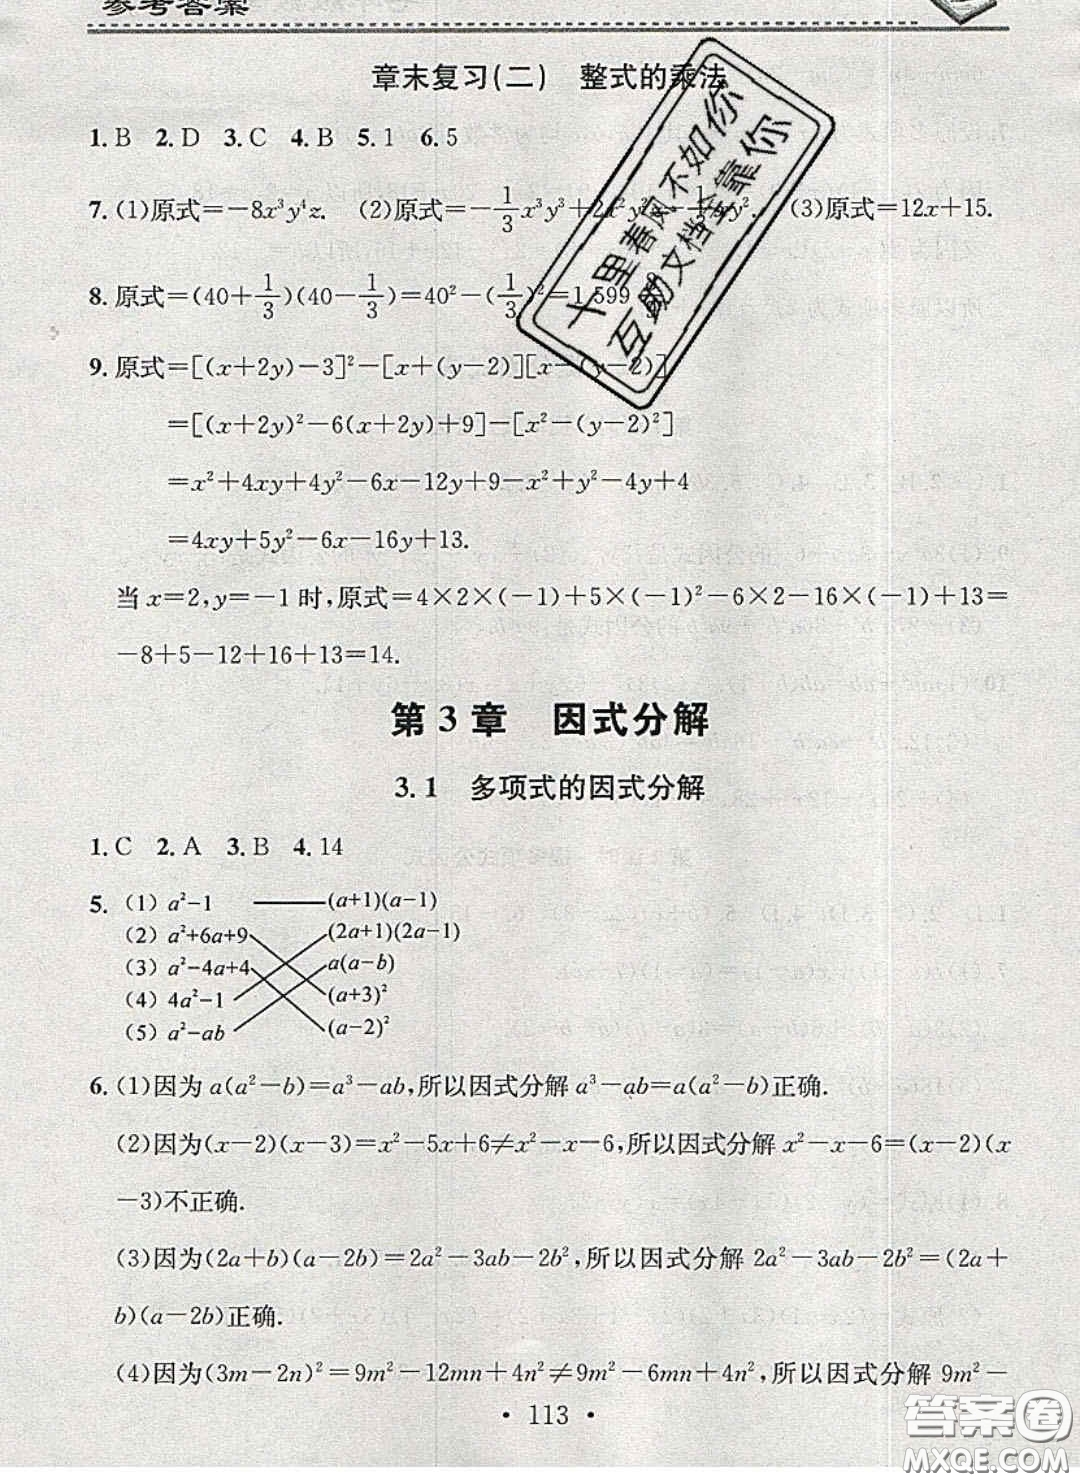 参考答案
章末复习(二) 整式的乘法
1.B 2.D 3.C 4.B 5.1 6.5
7.(1)原式=-8x³y⁴z. (2)原式=-1/3x³y³+2x²y²-y². (3)原式=12x+15.
8.原式=(40+1/3)(40-1/3)=40²-(1/3)²=1 599 8/9
9.原式=[(x+2y)-3]²-[x+(y-2)][x-(y-2)]
=[(x+2y)²-6(x+2y)+9]-[x²-(y-2)²]
=x²+4xy+4y²-6x-12y+9-x²+y²-4y+4
=4xy+5y²-6x-16y+13.
当x=2,y=-1时,原式=4×2×(-1)+5×(-1)²-6×2-16×(-1)+13=
-8+5-12+16+13=14.
十里春风不如你
互助文档全靠你
第3章 因式分解
3.1 多项式的因式分解
1.C 2.A 3.B 4.14
5.(1) a²-1 (a+1)(a-1)
(2) a²+6a+9 (2a+1)(2a-1)
(3) a²-4a+4 a(a-b)
(4) 4a²-1 (a+3)²
(5) a²-ab (a-2)²
6.(1)因为a(a²-b)=a³-ab,所以因式分解a³-ab=a(a²-b)正确.
(2)因为(x-2)(x-3)=x²-5x+6≠x²-x-6,所以因式分解x²-x-6=(x-2)(x
-3)不正确.
(3)因为(2a+b)(a-2b)=2a²-3ab-2b²,所以因式分解2a²-3ab-2b²=(2a+
b)(a-2b)正确.
(4)因为(3m-2n)²=9m²-12mn+4n²≠9m²-6mn+4n²,所以因式分解9m²-
· 113 ·
答案圈
MXQE.COM